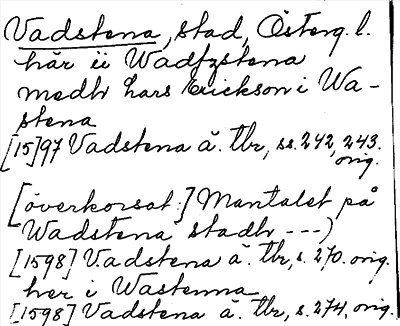 Vadstena, stad, Österg. l.
här ij Wadszstena
medh Lars Erickson i Wa-
stena
[15]97 Vadstena ä. tbr, ss. 242, 243.
orig.
[överkorsat:] Mantalet på
Wadstena stadh ---)
[1598] Vadstena ä. tbr, s. 270. orig.
her i Wastenna
[1598] Vadstena ä. tbr, s. 274, orig.